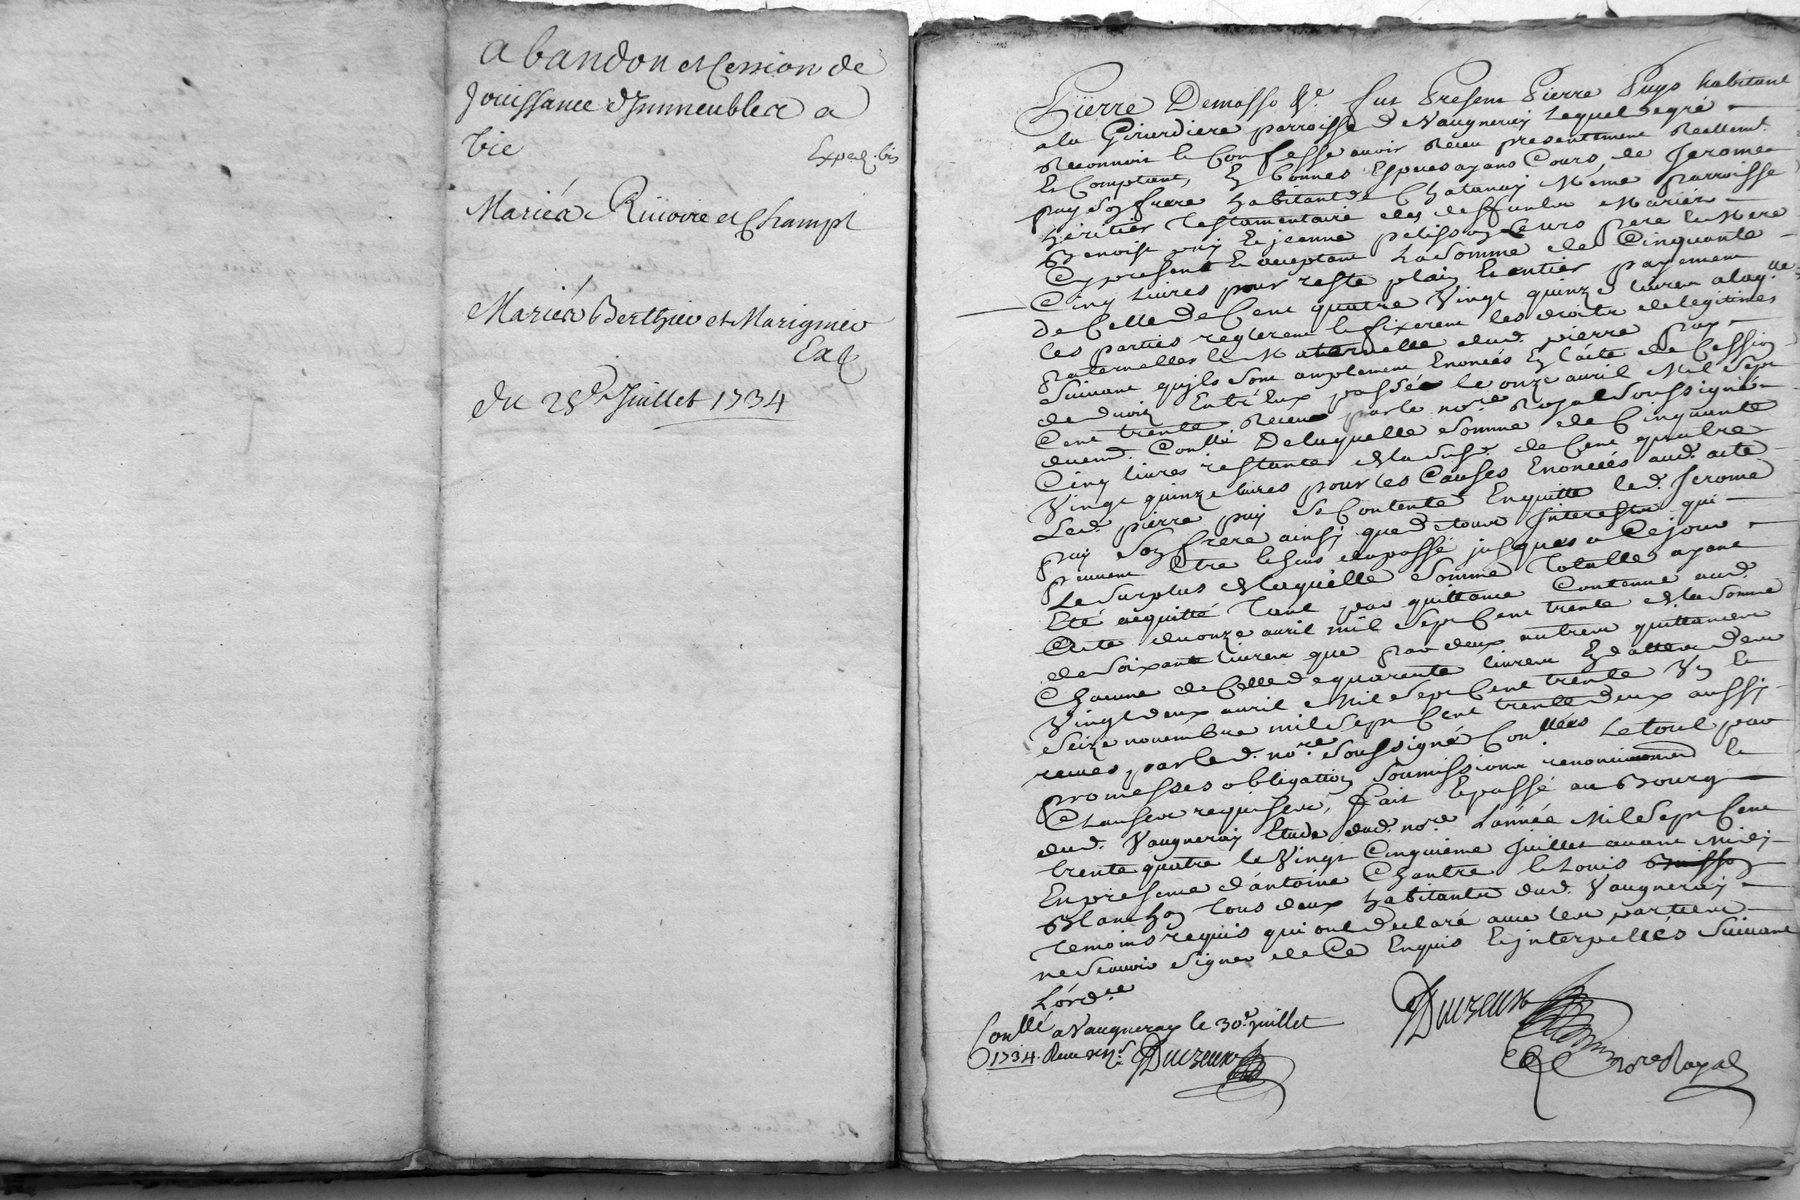 abandon et Cession de
Jouissance d'Immeubles a
vie
Exped. bis
Mariés Riuoire et Champt
Mariés Berthieu et Marignieu
Ex
du 25e Juillet 1734
Pierre Demasso &c. fut Present Pierre Puys habitant
a la Girardiere parroisse de Vaugneray Lequel de gré
Reconnoit et Confesse auoir Receu presentement Reellemt.
Et Comptant, En bonnes Especes ayans Cours, de Jerome
puy Son frere habitant de Chatanay Meme parroisse
heritier Testamentaire des deffunts Mariés
Benoist puy Et jeanne pelisson Leurs Pere Et Mere
Cy present Et acceptant La Somme de Cinquante
Cinq Liures pour reste plain Et entier payement
de Celle de Cent quatre Vingt quinze liures a laqlle
les parties reglerent Et fixerent les droits de legitimes
Paternelles Et Maternelle dud. pierre puy
Suiuant qu'ils sont amplement Enoncés En l'acte de Cession
de droits Entr'Eux passée le onze auril Mil Sept
Cent trente Receu par le nore. Royal Soussigné
duem. Conllé De laquelle Somme de Cinquante
Cinq liures restantes de la Susd. de Cent quatre
Vingt quinze liures pour les Causes Enoncées aud. acte
Led. pierre puy Se Contente Enquitte led. Jerome
puy Son frere ainsy que de tous Interests qui
peuuent Etre Echus du passé jusques a Ce jour
Le Surplus de laquelle Somme Totalle ayant
Eté acquitté Tant par quittance Contenue aud.
Acte du onze auril mil Sept Cent trente de la Somme
de Soixante liures que par deux autres quittances
Chacune de Celle de quarante liures En datte des
Vingt deux auril Mil Sept Cent trente Un Et
Seize nouembre mil Sept Cent trente deux aussi
receues par led. nore. Soussigné Conllées Le tout par
promesses obligation Soumissions renonciations Et
Clauses requises, Fait Et passé au Bourg
dud. Vaugneray Etude dud. nore. L'année Mil Sept Cent
trente quatre le Vingt Cinquième Juillet auant Midy
En presence d'antoine Chantre Et Louis Buisson
Blanchon tous deux habitants dud. Vaugneray
Temoins requis qui ont declaré auec les parties
ne Scauoir Signer de Ce Enquis Et interpellés Suiuant
L'ordce
Duczeux
nore Royal
Conllé a Vaugneray le 30e. juillet
1734. Receu Duczeux